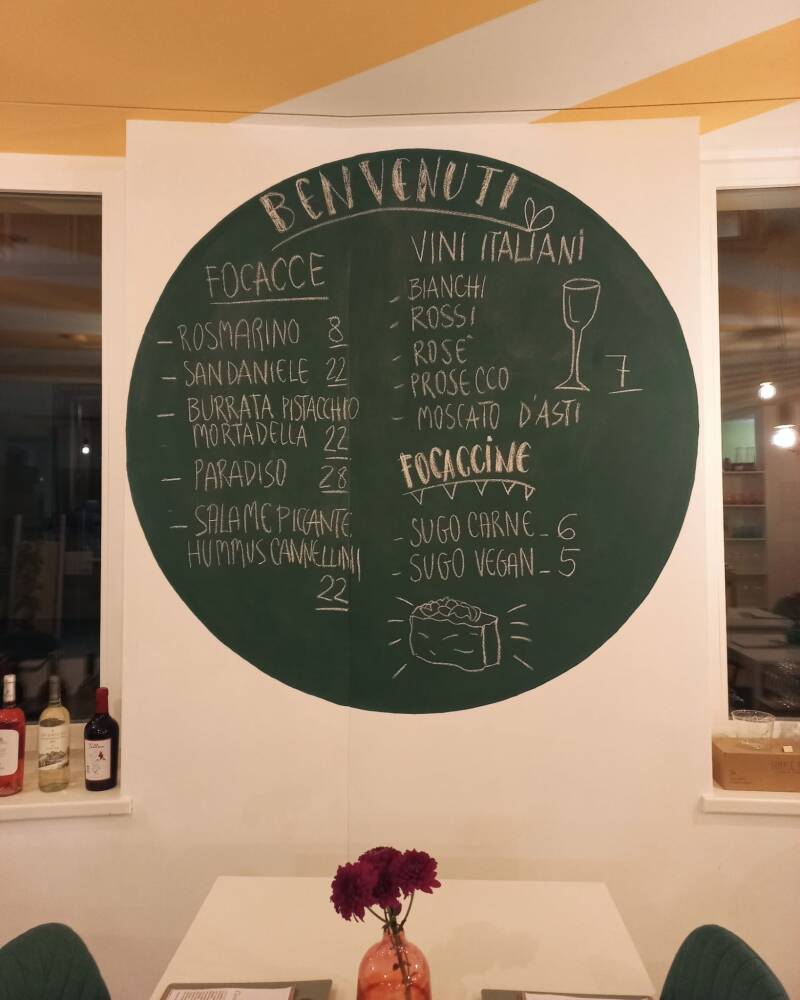 BENVENUTI
FOCACCE
- ROSMARINO 8
- SAN DANIELE 22
- BURRATA PISTACCHIO
MORTADELLA 22
- PARADISO 28
- SALAME PICCANTE
HUMMUS CANNELLINI
22
VINI ITALIANI
- BIANCHI
- ROSSI
- ROSE'
- PROSECCO
- MOSCATO D'ASTI
7
FOCACCINE
- SUGO CARNE - 6
- SUGO VEGAN - 5